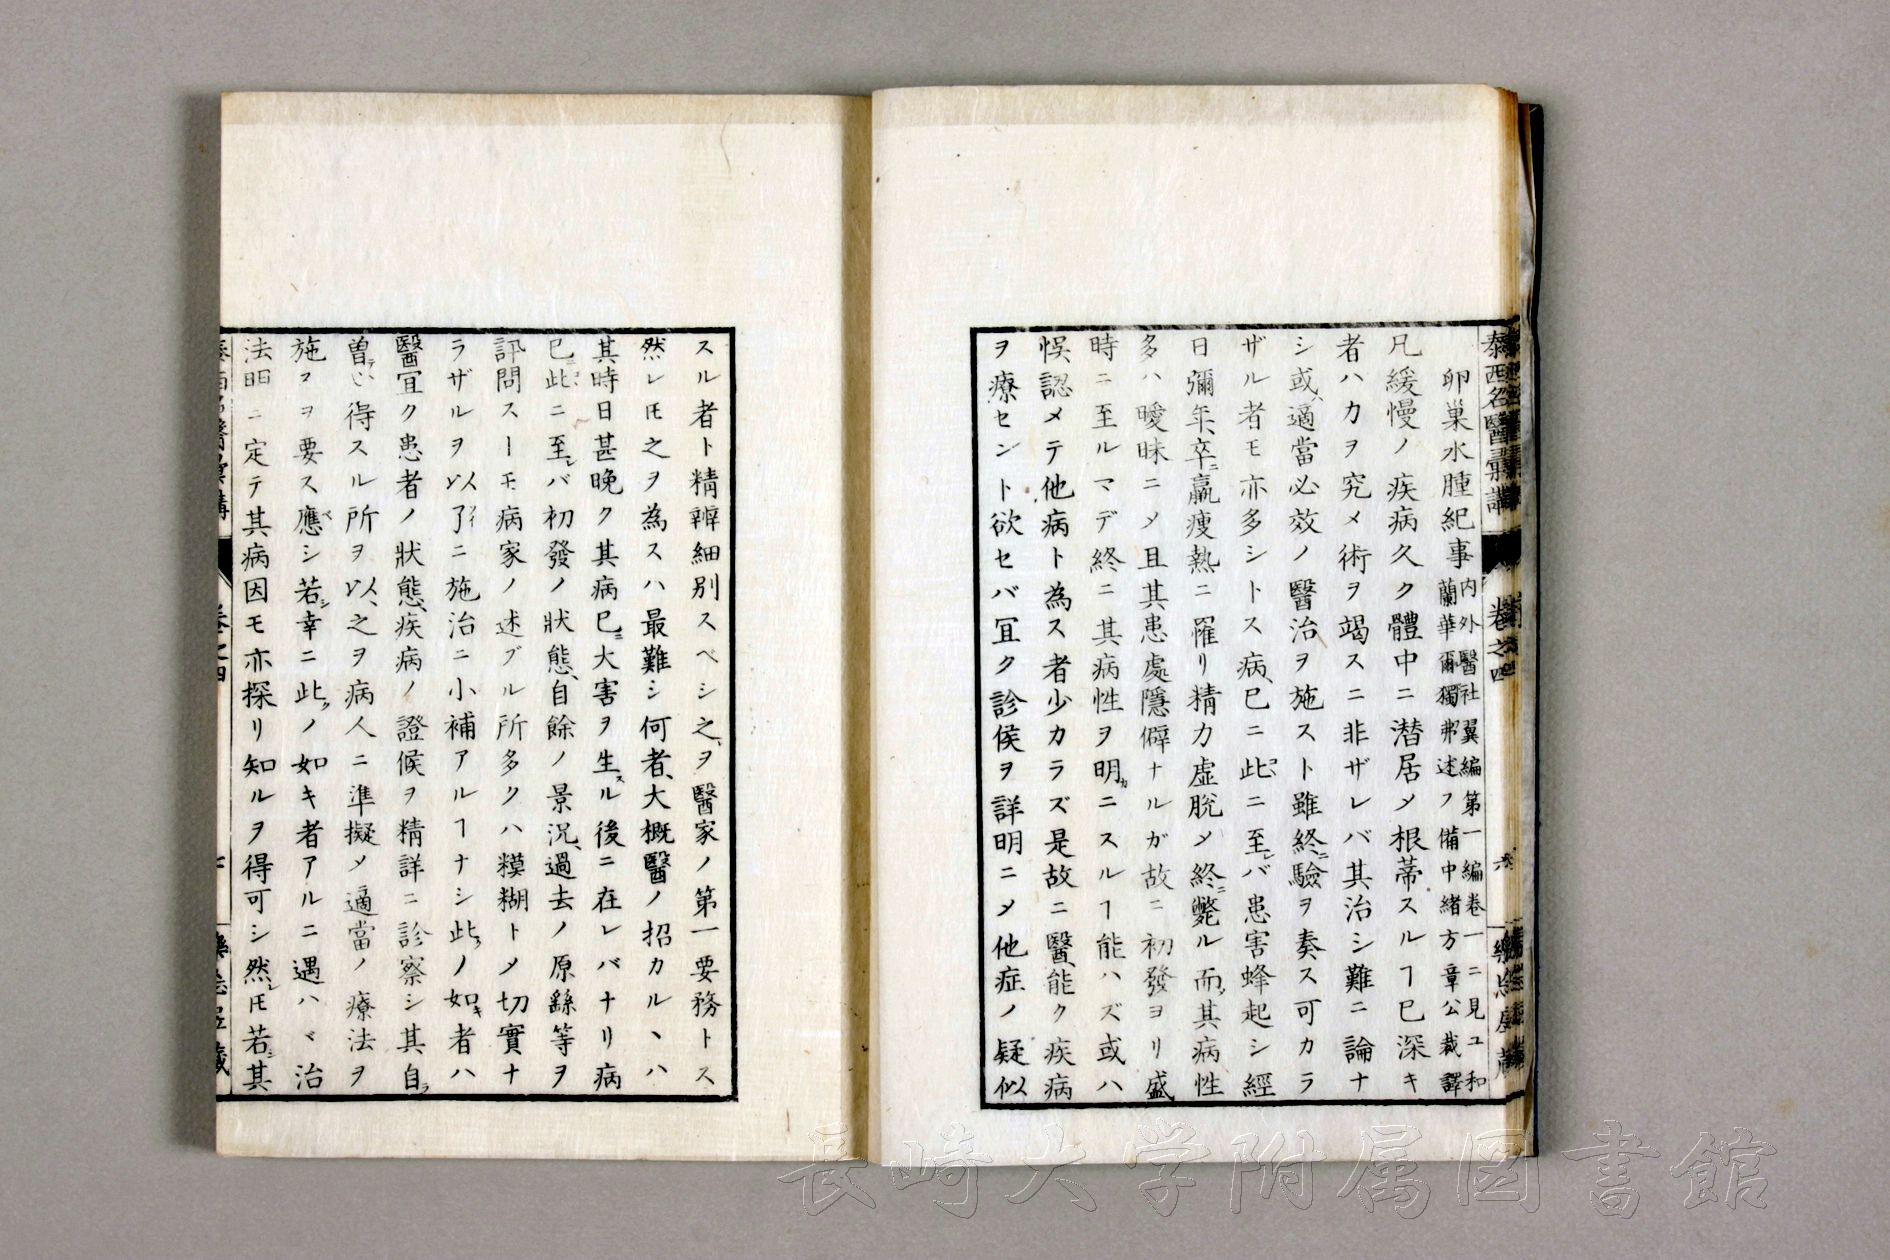 泰西名醫彙講 卷之四 六
卵巢水腫紀事 内外醫社翼編第一編卷一ニ見ユ和
蘭華爾獨弗述フ備中緒方章公裁譯
凡緩慢ノ疾病久ク體中ニ潜居メ根蒂スルヿ已深キ
者ハカヲ究メ術ヲ竭スニ非ザレバ其治シ難ニ論ナ
シ或、適當必效ノ醫治ヲ施スト雖終ニ驗ヲ奏ス可カラ
ザル者モ亦多シトス病、已ニ此ニ至レバ患害蜂起シ經
日彌年、卒ニ羸痩熱ニ罹リ精力虚脱メ終ニ斃ル而其病性
多ハ曖昧ニメ且其患處隱僻ナルガ故ニ初發ヨリ盛
時ニ至ルマデ終ニ其病性ヲ明カニスルヿ能ハズ或ハ
悞認メテ他病ト為ス者少カラズ是故ニ醫、能ク疾病
ヲ療セント欲セバ冝ク診候ヲ詳明ニメ他症ノ疑似
スル者ト精辨細別スベシ之、ヲ醫家ノ第一要務トス
然レ𪜈之ヲ為スハ最難シ何者、大概醫ノ招カルヽハ
其時日甚晩ク其病已ニ大害ヲ生スル後ニ在レバナリ病
已ニ此ニ至レバ初發ノ狀態、自餘ノ景況、過去ノ原繇等ヲ
訊問スーモ病家ノ述ブル所多クハ糢糊トメ切實ナ
ラザルヲ以了ニ施治ニ小補アルヿナシ此ノ如キ者ハ
醫冝ク患者ノ狀態、疾病ノ證候ヲ精詳ニ診察シ其自ラ
曽テ心得スル所ヲ以、之ヲ病人ニ準擬メ適當ノ療法ヲ
施スヲ要ス應シ若シ幸ニ此ノ如キ者アルニ遇ハヾ治
法明ニ定テ其病因モ亦探リ知ルヲ得可シ然𪜈若其
長崎大学附属図書館